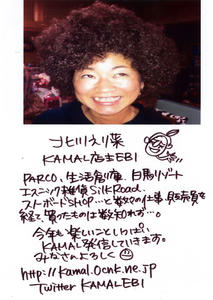 北川えり菜
KAMAL店主EBI
PARCO、生活倉庫、白馬リゾート
エスニック雑貨SilkRoad.
スノーボードSHOP…と数々の仕事、販売員を
経て買ったものは数知れず…。
今年も楽しいこといっぱい
KAMAL発信していきます。
みなさんよろしく
http://kamal.ocnk.ne.jp
Twitter KAMALEBI